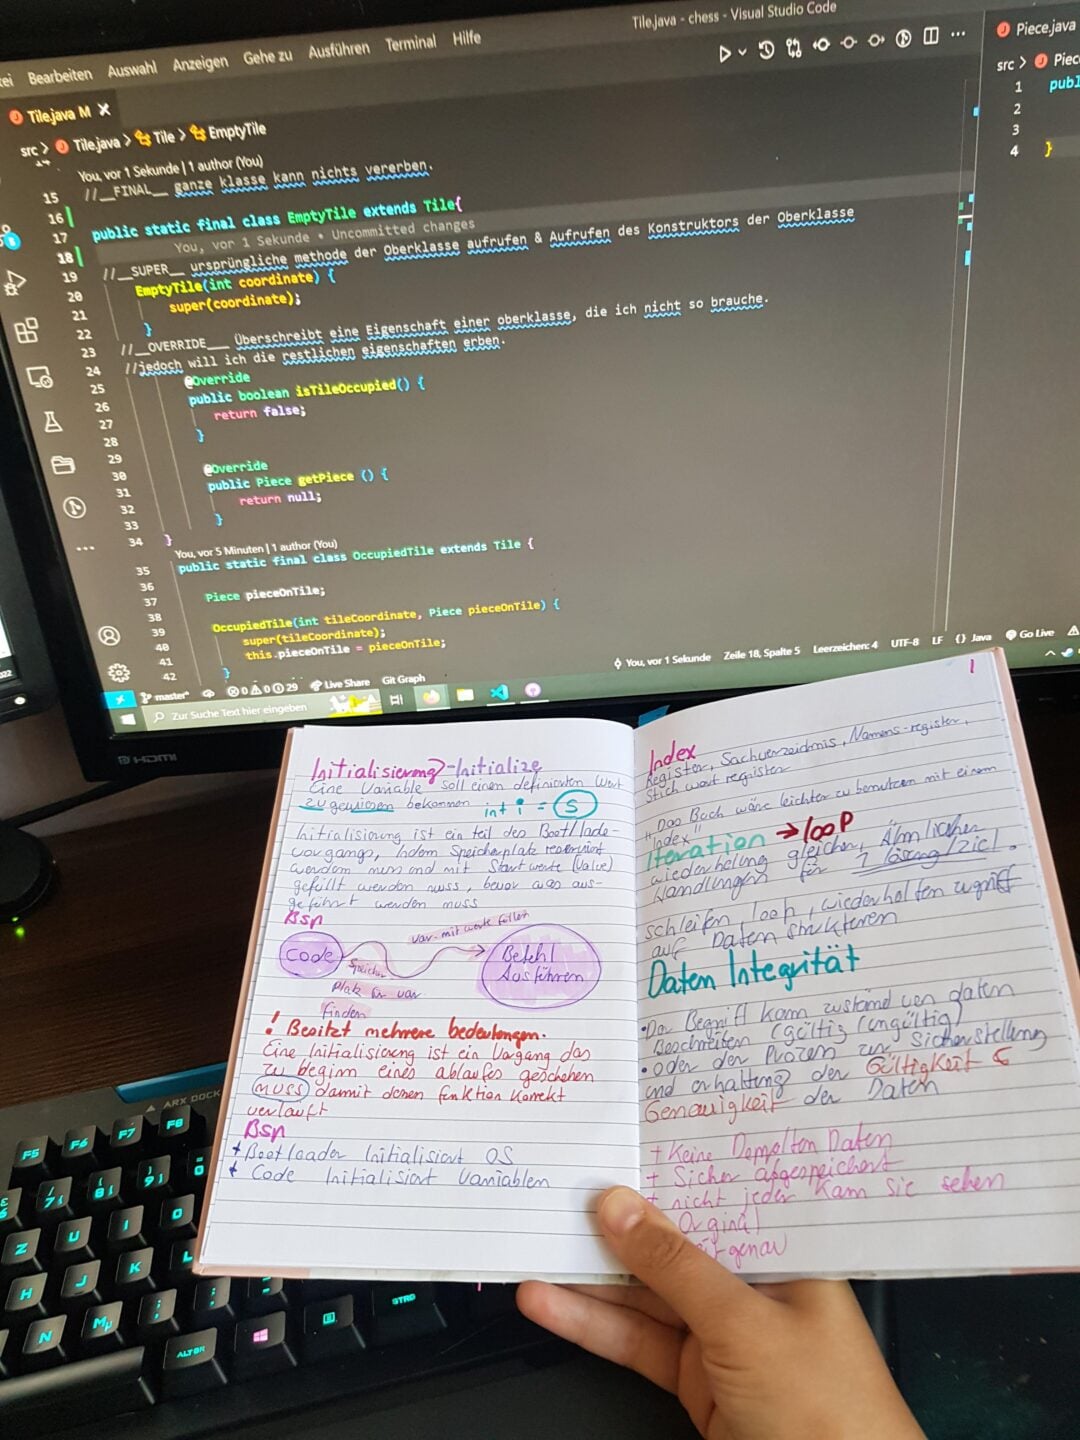 Tile.java - chess - Visual Studio Code
Bearbeiten Auswahl Anzeigen Gehe zu Ausführen Terminal Hilfe
Tile.java M
src > Tile.java > Tile > EmptyTile
You, vor 1 Sekunde | 1 author (You)
15 //__FINAL__ ganze klasse kann nichts vererben.
16
17 public static final class EmptyTile extends Tile{
18 You, vor 1 Sekunde • Uncommitted changes
19 //__SUPER__ ursprüngliche methode der Oberklasse aufrufen & Aufrufen des Konstruktors der Oberklasse
20 EmptyTile(int coordinate) {
21 super(coordinate);
22 }
23 //__OVERRIDE___ Überschreibt eine Eigenschaft einer oberklasse, die ich nicht so brauche.
24 //jedoch will ich die restlichen eigenschaften erben.
25 @Override
26 public boolean isTileOccupied() {
27 return false;
28 }
29
30 @Override
31 public Piece getPiece () {
32 return null;
33 }
34 }
You, vor 5 Minuten | 1 author (You)
35 public static final class OccupiedTile extends Tile {
36
37 Piece pieceOnTile;
38
39 OccupiedTile(int tileCoordinate, Piece pieceOnTile) {
40 super(tileCoordinate);
41 this.pieceOnTile = pieceOnTile;
42 }
Piece.java
src > Piec
1 publ
2
3
4 }
master* 0 0 29 Live Share Git Graph
You, vor 1 Sekunde Zeile 18, Spalte 5 Leerzeichen: 4 UTF-8 LF {} Java Go Live
Zur Suche Text hier eingeben
HDMI
Initialisierung-Initialize
Eine Variable soll einen definierten Wert
zugewiesen bekommen int i = 5
Initialisierung ist ein teil des Boot/lade-
vorgangs, indem Speicherplatz reserviert
werden muss und mit Startwerte (Value)
gefüllt werden muss, bevor aus-
geführt werden muss
Bsp
Code
var mit werte füllen
Speicher
Platz für var
finden
Befehl
Ausführen
! Besitzt mehrere bedeutungen.
Eine Initialisierung ist ein Vorgang das
zu beginn eines ablaufes geschehen
muss damit deren funktion korrekt
verläuft
Bsp
+ Bootloader Initialisiert OS
+ Code Initialisiert Variablen
1
Index
Register, Sachverzeichnis, Namens-register,
Stich wort register
"Das Buch wäre leichter zu benutzen mit einem
Index"
Iteration → loop
wiederholung gleicher, Ähnlicher
Handlungen für 1 lösung/ziel.
schleifen, loop, wiederholten zugriff
auf Daten strukturen
Daten Integrität
• Der Begriff kann zustand von daten
Beschreiben (gültig/ungültig)
• oder der Prozess zur Sicherstellung
und erhaltung der Gültigkeit &
Genauigkeit der Daten
+ Keine Doppelten Daten
+ Sicher abgespeichert
+ nicht jeder kann sie sehen
Orginal
genau
ARX DOCK
F5 F6 F7 F8
Z U I O
H J K L
N M
ALT GR
STRG